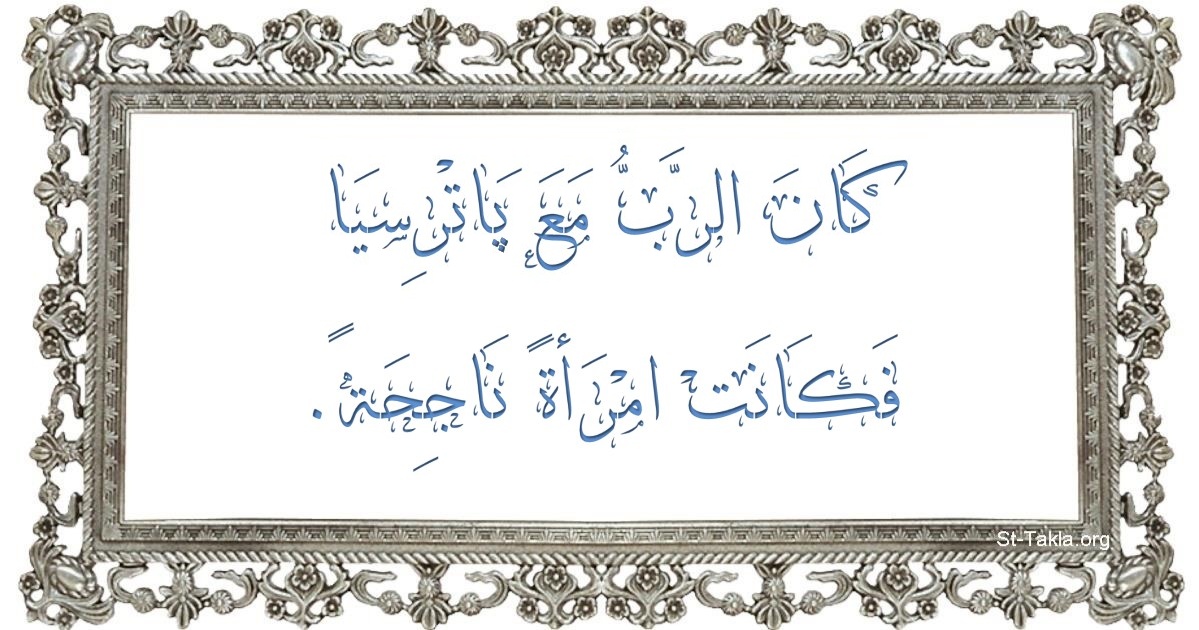 كَانَ الرَّبُّ مَعَ پَاتْرِسِيَا
فَكَانَت امْرَأَةً نَاجِحَةً.
St-Takla.org